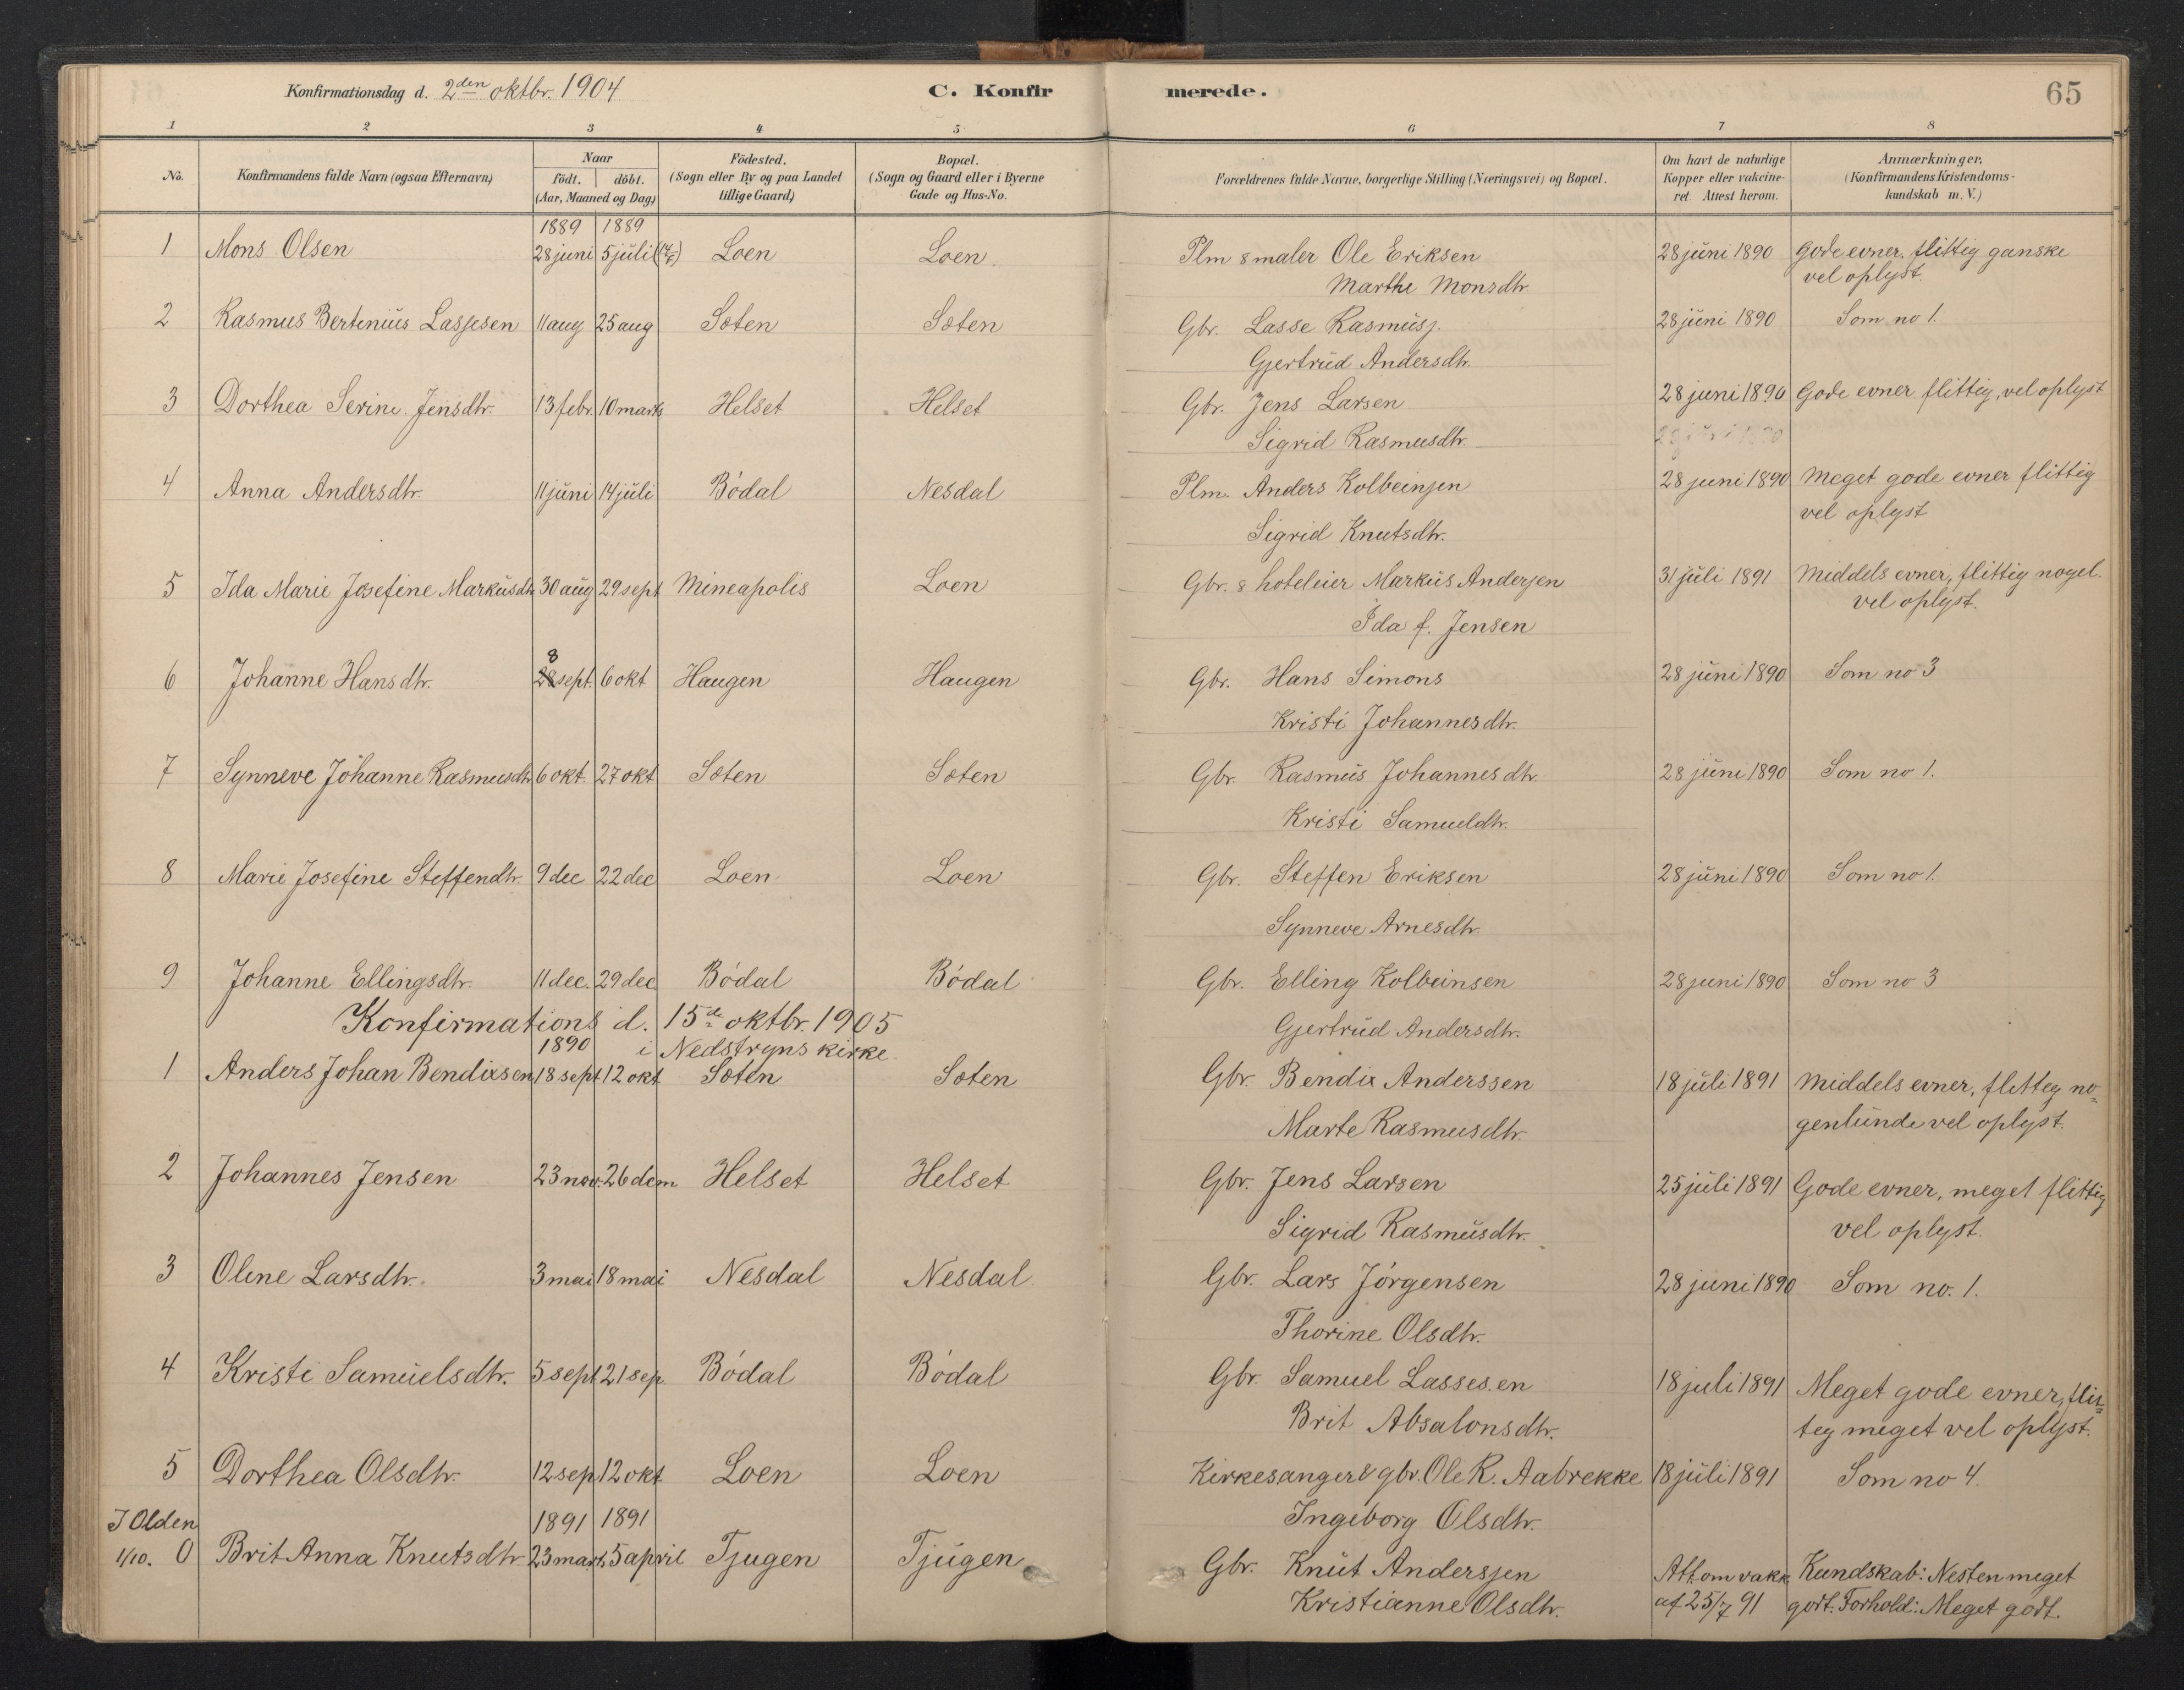 Konfirmationsdag d. 2den oktbr. 1904 C. Konfirmerede. 65
1 2 3 4 5 6 7 8
No. Konfirmandens fulde Navn (ogsaa Efternavn) Naar födt. döbt. (Aar, Maaned og Dag.) Födested. (Sogn eller By og paa Landet tillige Gaard.) Bopæl. (Sogn og Gaard eller i Byerne Gade og Hus-No. Forældrenes fulde Navne, borgerlige Stilling (Næringsvei) og Bopæl. Om havt de naturlige Kopper eller vakcineret. Attest herom. Anmærkninger. (Konfirmandens Kristendomskundskab m. V.)
1889 1889
1 Mons Olsen 28 juni 5 juli Loen Loen. Plm & maler Ole Eriksen 28 juni 1890 Gode evner, flittig ganske
Marthe Monsdtr. vel oplyst.
2 Rasmus Bertinius Lassesen 11 aug 25 aug Sæten Sæten Gbr. Lasse Rasmuss. 28 juni 1890 Som no 1.
Gjertrud Andersdtr.
3 Dorthea Serine Jensdtr. 13 febr. 10 marts Helset Helset Gbr. Jens Larsen 28 juni 1890 Gode evner flittig, vel oplyst
Sigrid Rasmusdtr.
4 Anna Andersdtr. 11 juni 14 juli Bödal Nesdal Plm. Anders Kolbeinsen 28 juni 1890 Meget gode evner flittig
Sigrid Knutsdtr. vel oplyst
5 Ida Marie Josefine Markusdtr 30 aug 29 sept Mineapolis Loen Gbr. & hoteleier Markus Andersen 31 juli 1891 Middels evner, flittig nogel.
Ida f. Jensen vel oplyst.
8
6 Johanne Hansdtr. 28 sept. 6 okt Haugen Haugen Gbr. Hans Simons 28 juni 1890 Som no 3
Kristi Johannesdtr.
7 Synneve Johanne Rasmusdtr 6 okt. 27 okt Sæten Sæten Gbr. Rasmus Johannesdtr. 28 juni 1890 Som no 1.
Kristi Samueldtr.
8 Marie Josefine Steffendtr. 9 dec 22 dec Loen Loen Gbr. Steffen Eriksen 28 juni 1890 Som no 1.
Synneve Arnesdtr.
9 Johanne Ellingsdtr. 11 dec. 29 dec Bödal Bödal Gbr. Elling Kolbeinsen 28 juni 1890 Som no 3
Gjertrud Andersdtr.
Konfirmations d. 15de oktbr. 1905
1890 i Nedstryns kirke.
1 Anders Johan Bendixsen 18 sept 12 okt Sæten Sæten Gbr. Bendix Anderssen 18 juli 1891 Middels evner, flitteg no-
Marte Rasmusdtr. genlunde vel oplyst.
2 Johannes Jensen 23 nov. 26 dem Helset Helset Gbr. Jens Larsen 25 juli 1891 Gode evner, meget flittig
Sigrid Rasmusdtr. vel oplyst.
3 Oline Larsdtr. 3 mai 18 mai Nesdal Nesdal Gbr. Lars Jörgensen 28 juni 1890 Som no. 1.
Thorine Olsdtr.
4 Kristi Samuelsdtr. 5 sept 21 sep. Bödal Bödal Gbr. Samuel Lassesen 18 juli 1891 Meget gode evner, flit-
Brit Absalonsdtr. teg meget vel oplyst.
5 Dorthea Olsdtr. 12 sep 12 okt Loen Loen Kirkesanger & gbr. Ole R. Aabrekke 18 juli 1891 Som no 4.
Ingeborg Olsdtr.
I Olden 1891 1891
1/10. 0 Brit Anna Knutsdtr. 23 mart. 5 april Tjugen Tjugen Gbr. Knut Anderssen Att. om vakk. Kundskab: Nesten meget
Kristianne Olsdtr. af 25/7 91 godt. Forhold: Meget godt.